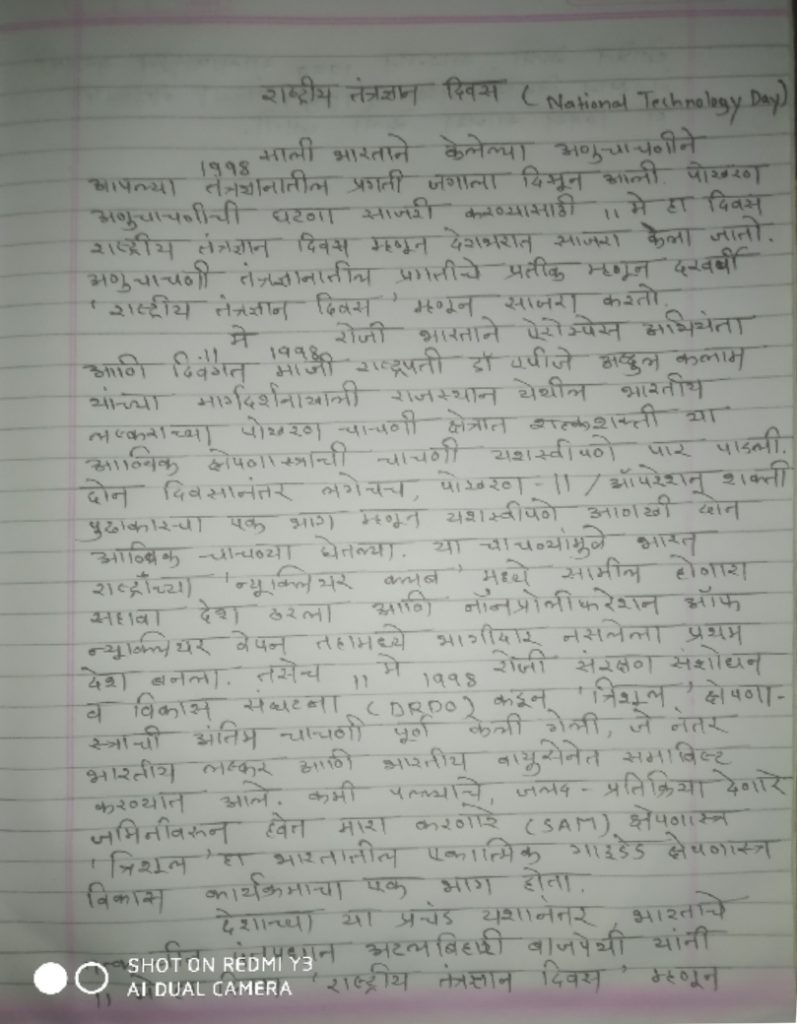 राष्ट्रीय तंत्रज्ञान दिवस (National Technology Day)
1998 साली भारताने केलेल्या अणुचाचणीने
आपल्या तंत्रज्ञानातील प्रगती जगाला दिसून आली. पोखरण
अणुचाचणीची घटना साजरी करण्यासाठी 11 मे हा दिवस
राष्ट्रीय तंत्रज्ञान दिवस म्हणून देशभरात साजरा केला जातो.
अणुचाचणी तंत्रज्ञानातील प्रगतीचे प्रतीक म्हणून दरवर्षी
'राष्ट्रीय तंत्रज्ञान दिवस' म्हणून साजरा करतो.
11 मे 1998 रोजी भारताने ऐरोस्पेस अभियंता
आणि दिवंगत माजी राष्ट्रपती डॉ एपीजे अब्दुल कलाम
यांच्या मार्गदर्शनाखाली राजस्थान येथील भारतीय
लष्कराच्या पोखरण चाचणी क्षेत्रात शक्ती या
आण्विक क्षेपणास्त्राची चाचणी यशस्वीपणे पार पाडली.
दोन दिवसानंतर लगेचच, पोखरण-11/ऑपरेशन शक्ती
पुढाकारचा एक भाग म्हणून यशस्वीपणे आणखी दोन
आण्विक चाचण्या घेतल्या. या चाचण्यांमुळे भारत
राष्ट्रांच्या 'न्यूक्लियर क्लब' मध्ये सामील होणारा
सहावा देश ठरला आणि नॉनप्रोलीफरेशन ऑफ
न्यूक्लियर वेपन तहामध्ये भागीदार नसलेला प्रथम
देश बनला. तसेच 11 मे 1998 रोजी संरक्षण संशोधन
व विकास संघटना (DRDO) कडून 'त्रिशूल' क्षेपणा-
स्त्राची अंतिम चाचणी पूर्ण केली गेली, जे नंतर
भारतीय लष्कर आणि भारतीय वायुसेनेत समाविष्ट
करण्यात आले. कमी पल्ल्याचे, जलद-प्रतिक्रिया देणारे
जमिनीवरून हवेत मारा करणारे (SAM) क्षेपणास्त्र
'त्रिशूल' हा भारतातील एकात्मिक गाइडेड क्षेपणास्त्र
विकास कार्यक्रमाचा एक भाग होता.
देशाच्या या प्रचंड यशानंतर, भारताचे
अटलबिहारी वाजपेयी यांनी
11 'राष्ट्रीय तंत्रज्ञान दिवस' म्हणून
SHOT ON REDMI Y3
AI DUAL CAMERA